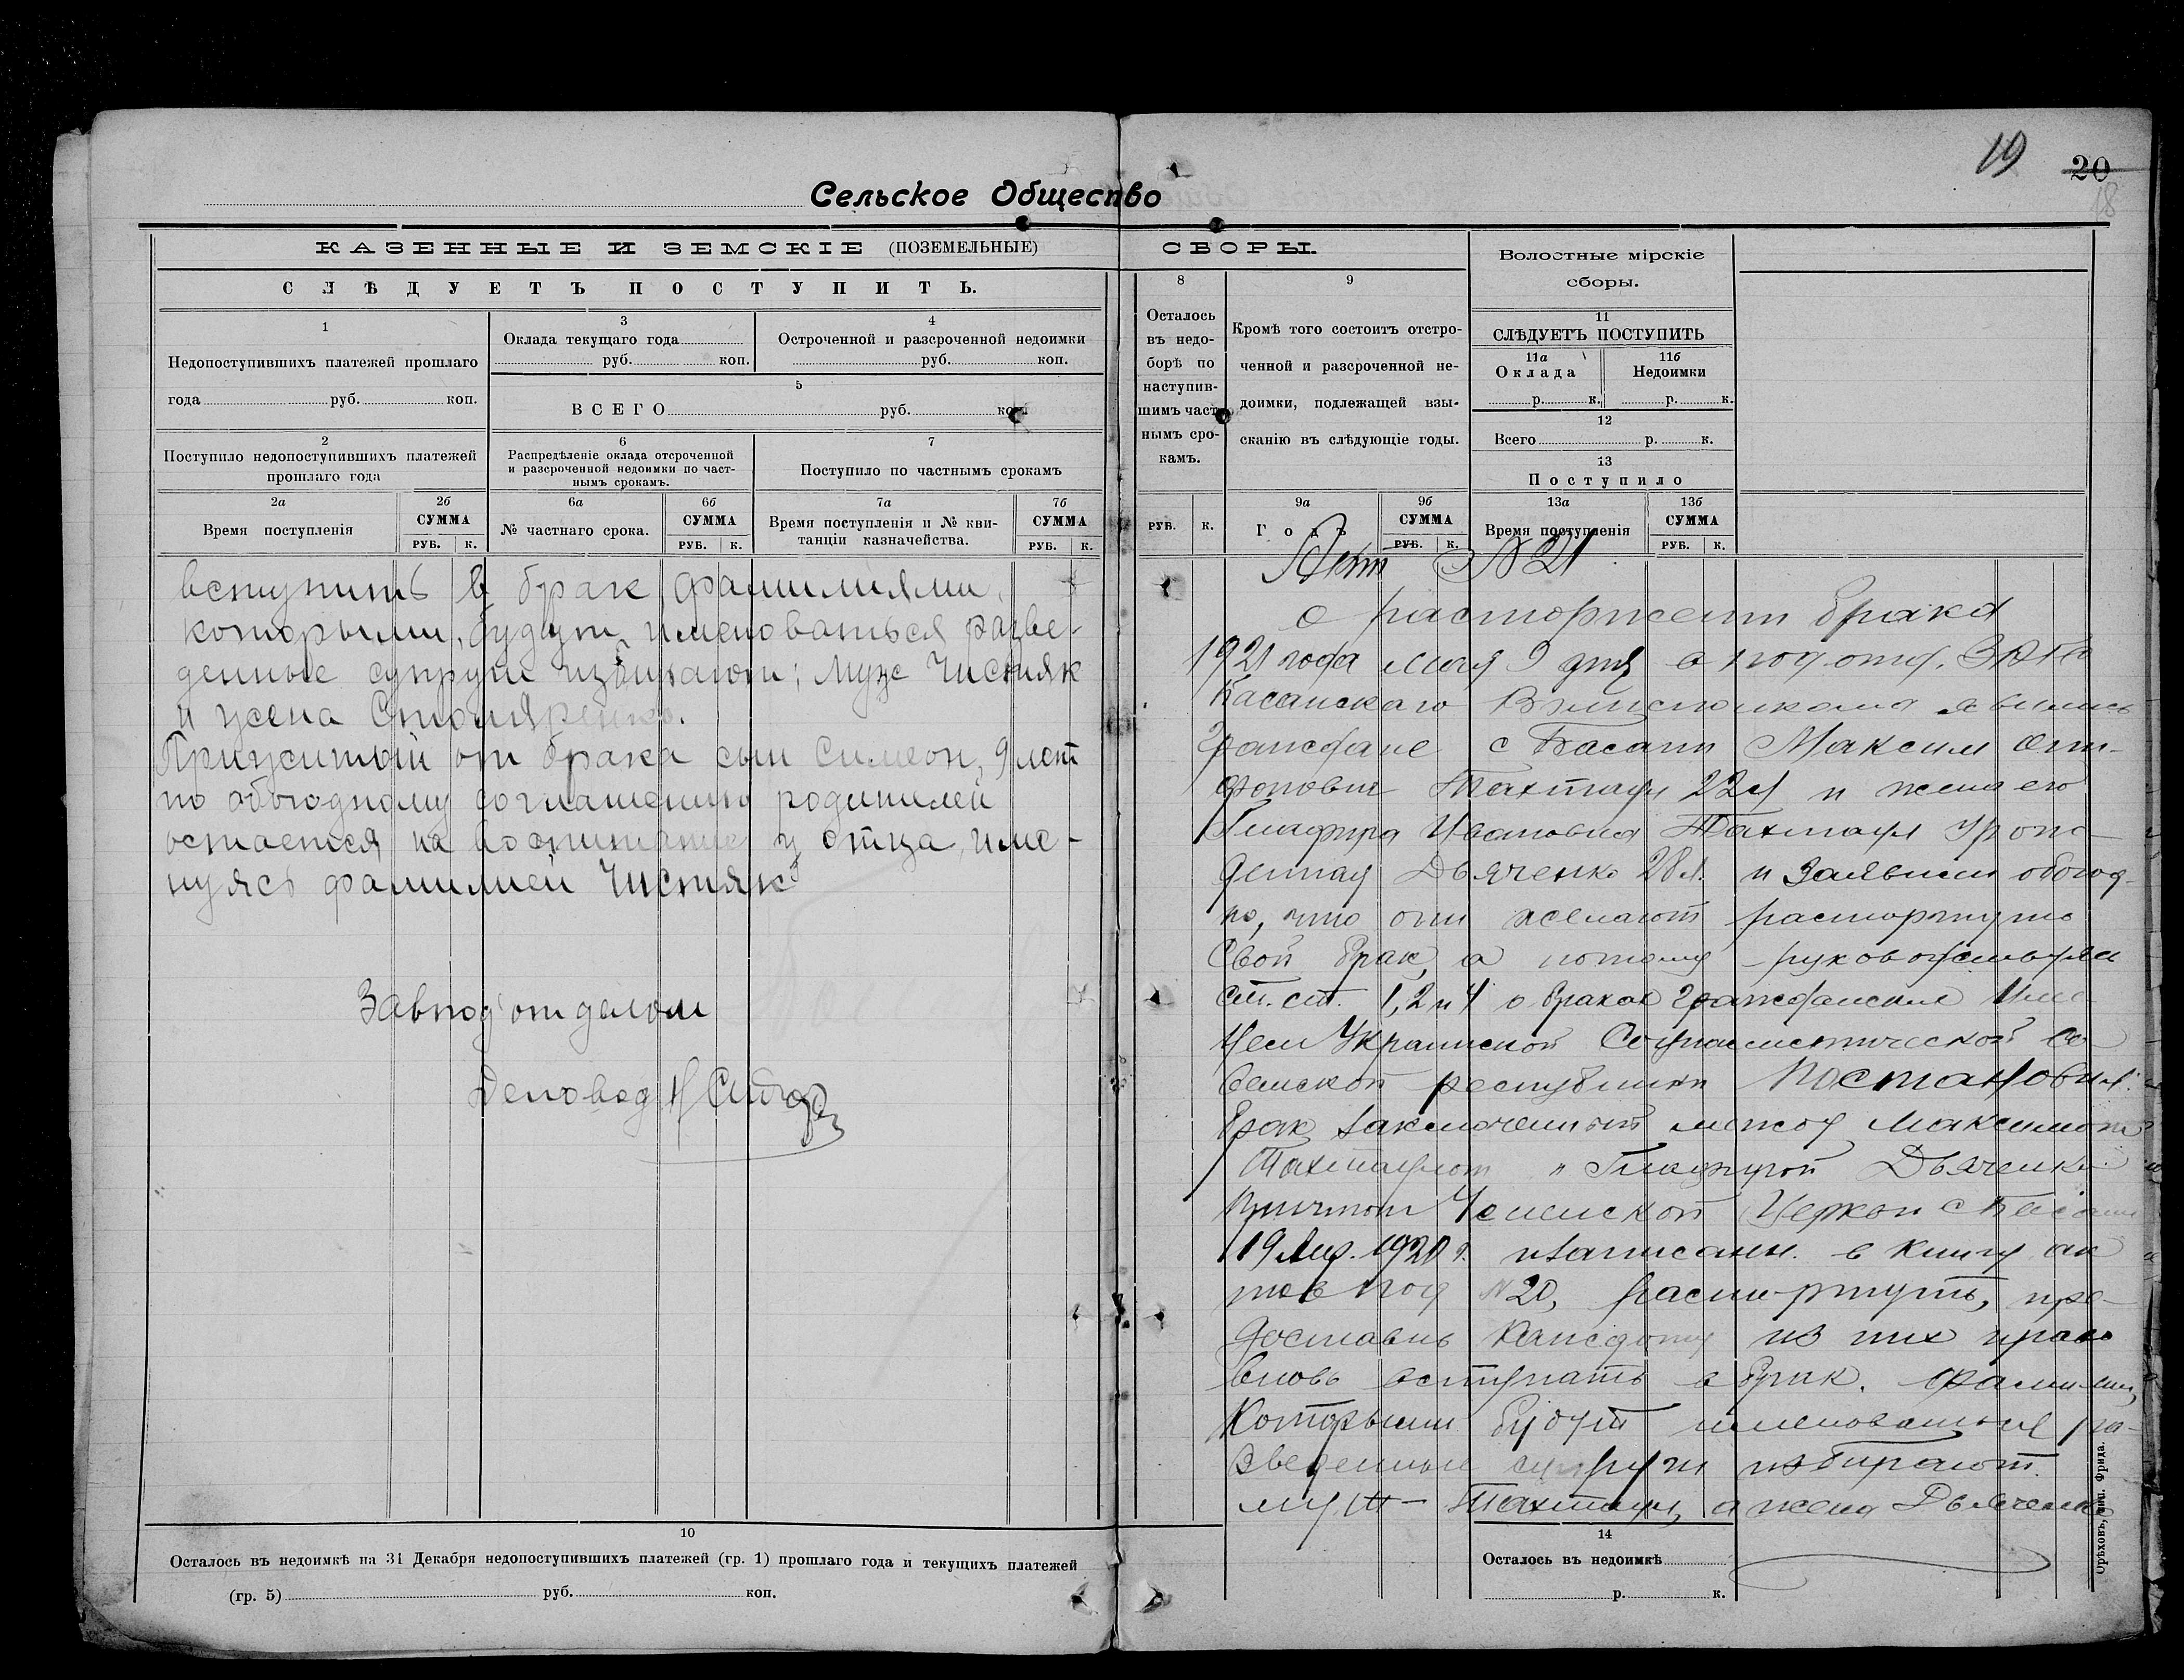 19 20
18
Сельское Общество
КАЗЕННЫЕ И ЗЕМСКІЕ (ПОЗЕМЕЛЬНЫЕ)
СЛѢДУЕТЪ ПОСТУПИТЬ.
1
Недопоступившихъ платежей прошлаго
года руб. коп.
3
Оклада текущаго года
руб. коп.
4
Остроченной и разсроченной недоимки
руб. коп.
5
ВСЕГО руб. коп.
2
Поступило недопоступившихъ платежей
прошлаго года
6
Распредѣленіе оклада отсроченной
и разсроченной недоимки по част-
нымъ срокамъ.
7
Поступило по частнымъ срокамъ
2а
Время поступленія
2б
СУММА
РУБ. К.
6а
№ частнаго срока.
6б
СУММА
РУБ. К.
7а
Время поступленія и № кви-
танціи казначейства.
7б
СУММА
РУБ. К.
вступить в брак фамилиями,
которыми будут именоваться разве-
денные супруги избирают: муж Чистяк
и жена Столяренко.
Прижитый от брака сын Симеон, 9 лет
по обоюдному соглашению родителей
остается на воспитание у отца, име-
нуясь фамилией Чистяк
Завподотделом
Деловод Н
10
Осталось въ недоимкѣ на 31 Декабря недопоступившихъ платежей (гр. 1) прошлаго года и текущихъ платежей
(гр. 5) руб. коп.
СБОРЫ.
8
Осталось
въ недо-
борѣ по
наступив-
шимъ част-
нымъ сро-
камъ.
РУБ. К.
9
Кромѣ того состоитъ отстро-
ченной и разсроченной не-
доимки, подлежащей взы-
сканію въ слѣдующіе годы.
9а
Годъ
9б
СУММА
РУБ. К.
Волостные мірскіе
сборы.
11
СЛѢДУЕТЪ ПОСТУПИТЬ
11а
Оклада
р. к.
11б
Недоимки
р. к.
12
Всего р. к.
13
Поступило
13а
Время поступленія
13б
СУММА
РУБ. К.
Акт № 21
о расторжении брака
1921 года мая 9 дня в подотд. ЗАГС
Басанского Волисполкома явились
Граждане с Басани Максим
Тахтаул 22 и жена его
Глафира Ивановна Тахтаул урож-
денная Дьяченко 28 л. и заявили обоюд-
но, что они желают расторгнуть
свой брак, а потому руководствуясь
ст. ст. 1, 2 и 4 о браках гражданския
Украинской Социалистической Со-
ветской республики Постановил:
Брак заключенный между Максимом
Тахтаулом и Глафирой Дьяченко
Причтом Церкви с Басани
19 1920 г. и записанн. в книгу ак
тов под № 20, расторгнуть, пре-
доставив каждому из них право
вновь вступать в брак. Фамилии,
Которыми будут именоваться ра-
зведенные супруги избирают:
муж - Тахтаул, а жена Дьяченко
14
Осталось въ недоимкѣ
р. к.
Орѣховъ, тип. Фрида.